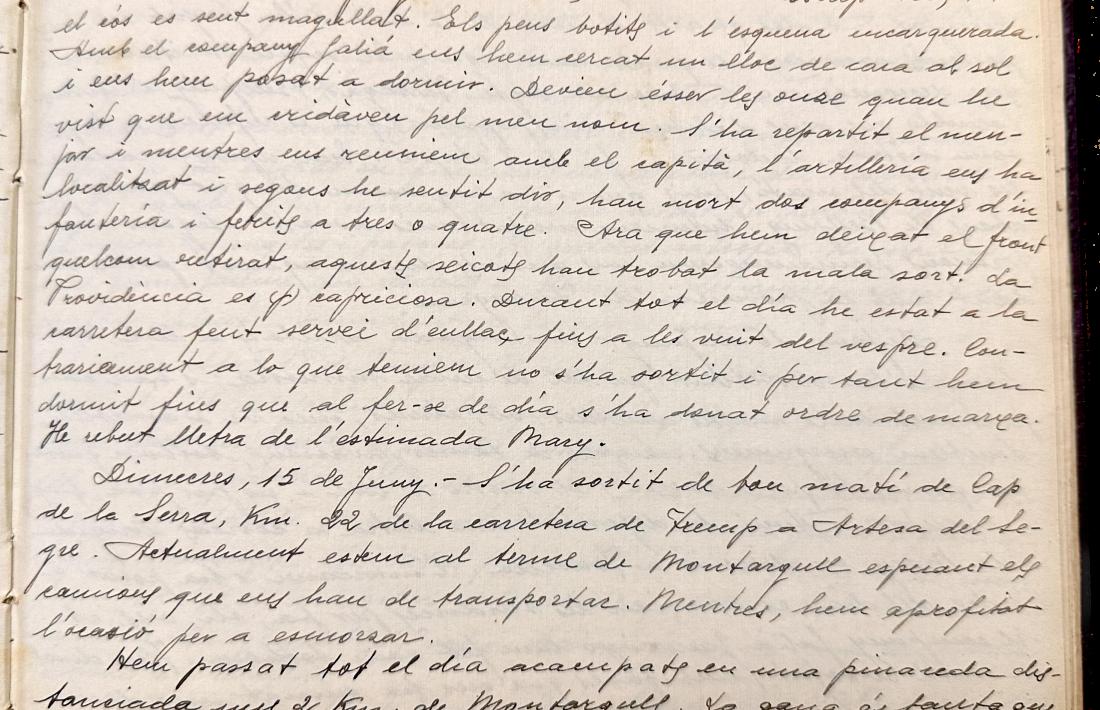 el cós es sent magullat. Els peus botits i l'esquena encarquerada.
Amb el company Galiá ens hem cercat un lloc de cara al sol
i ens hem posat a dormir. Devien ésser les onze quan he
vist que em cridàven pel meu nom. S'ha repartit el men-
jar i mentres ens reuniem amb el capità, l'artillería ens ha
localitzat i segons he sentit dir, han mort dos companys d'in-
fantería i ferits a tres o quatre. Ara que hem deixat el front
quelcom retirat, aquests xicots han trobat la mala sort. La
Providència es (f) capriciosa. Durant tot el día he estat a la
carretera fent servei d'enllaç fins a les vuit del vespre. Con-
trariament a lo que temíem no s'ha sortit i per tant hem
dormit fins que al fer-se de día s'ha donat ordre de marxa.
He rebut lletra de l'estimada Mary.
Dimecres, 15 de Juny.- S'ha sortit de bon matí de Cap
de la Serra, Km. 22 de la carretera de Tremp a Artesa del Se-
gre. Actualment estem al terme de Montargull esperant els
camions que ens han de transportar. Mentres, hem aprofitat
l'ocasió per a esmorzar.
Hem passat tot el día acampats en una pinareda dis-
tanciada uns 2 Km. de Montargull. La gana és tanta que